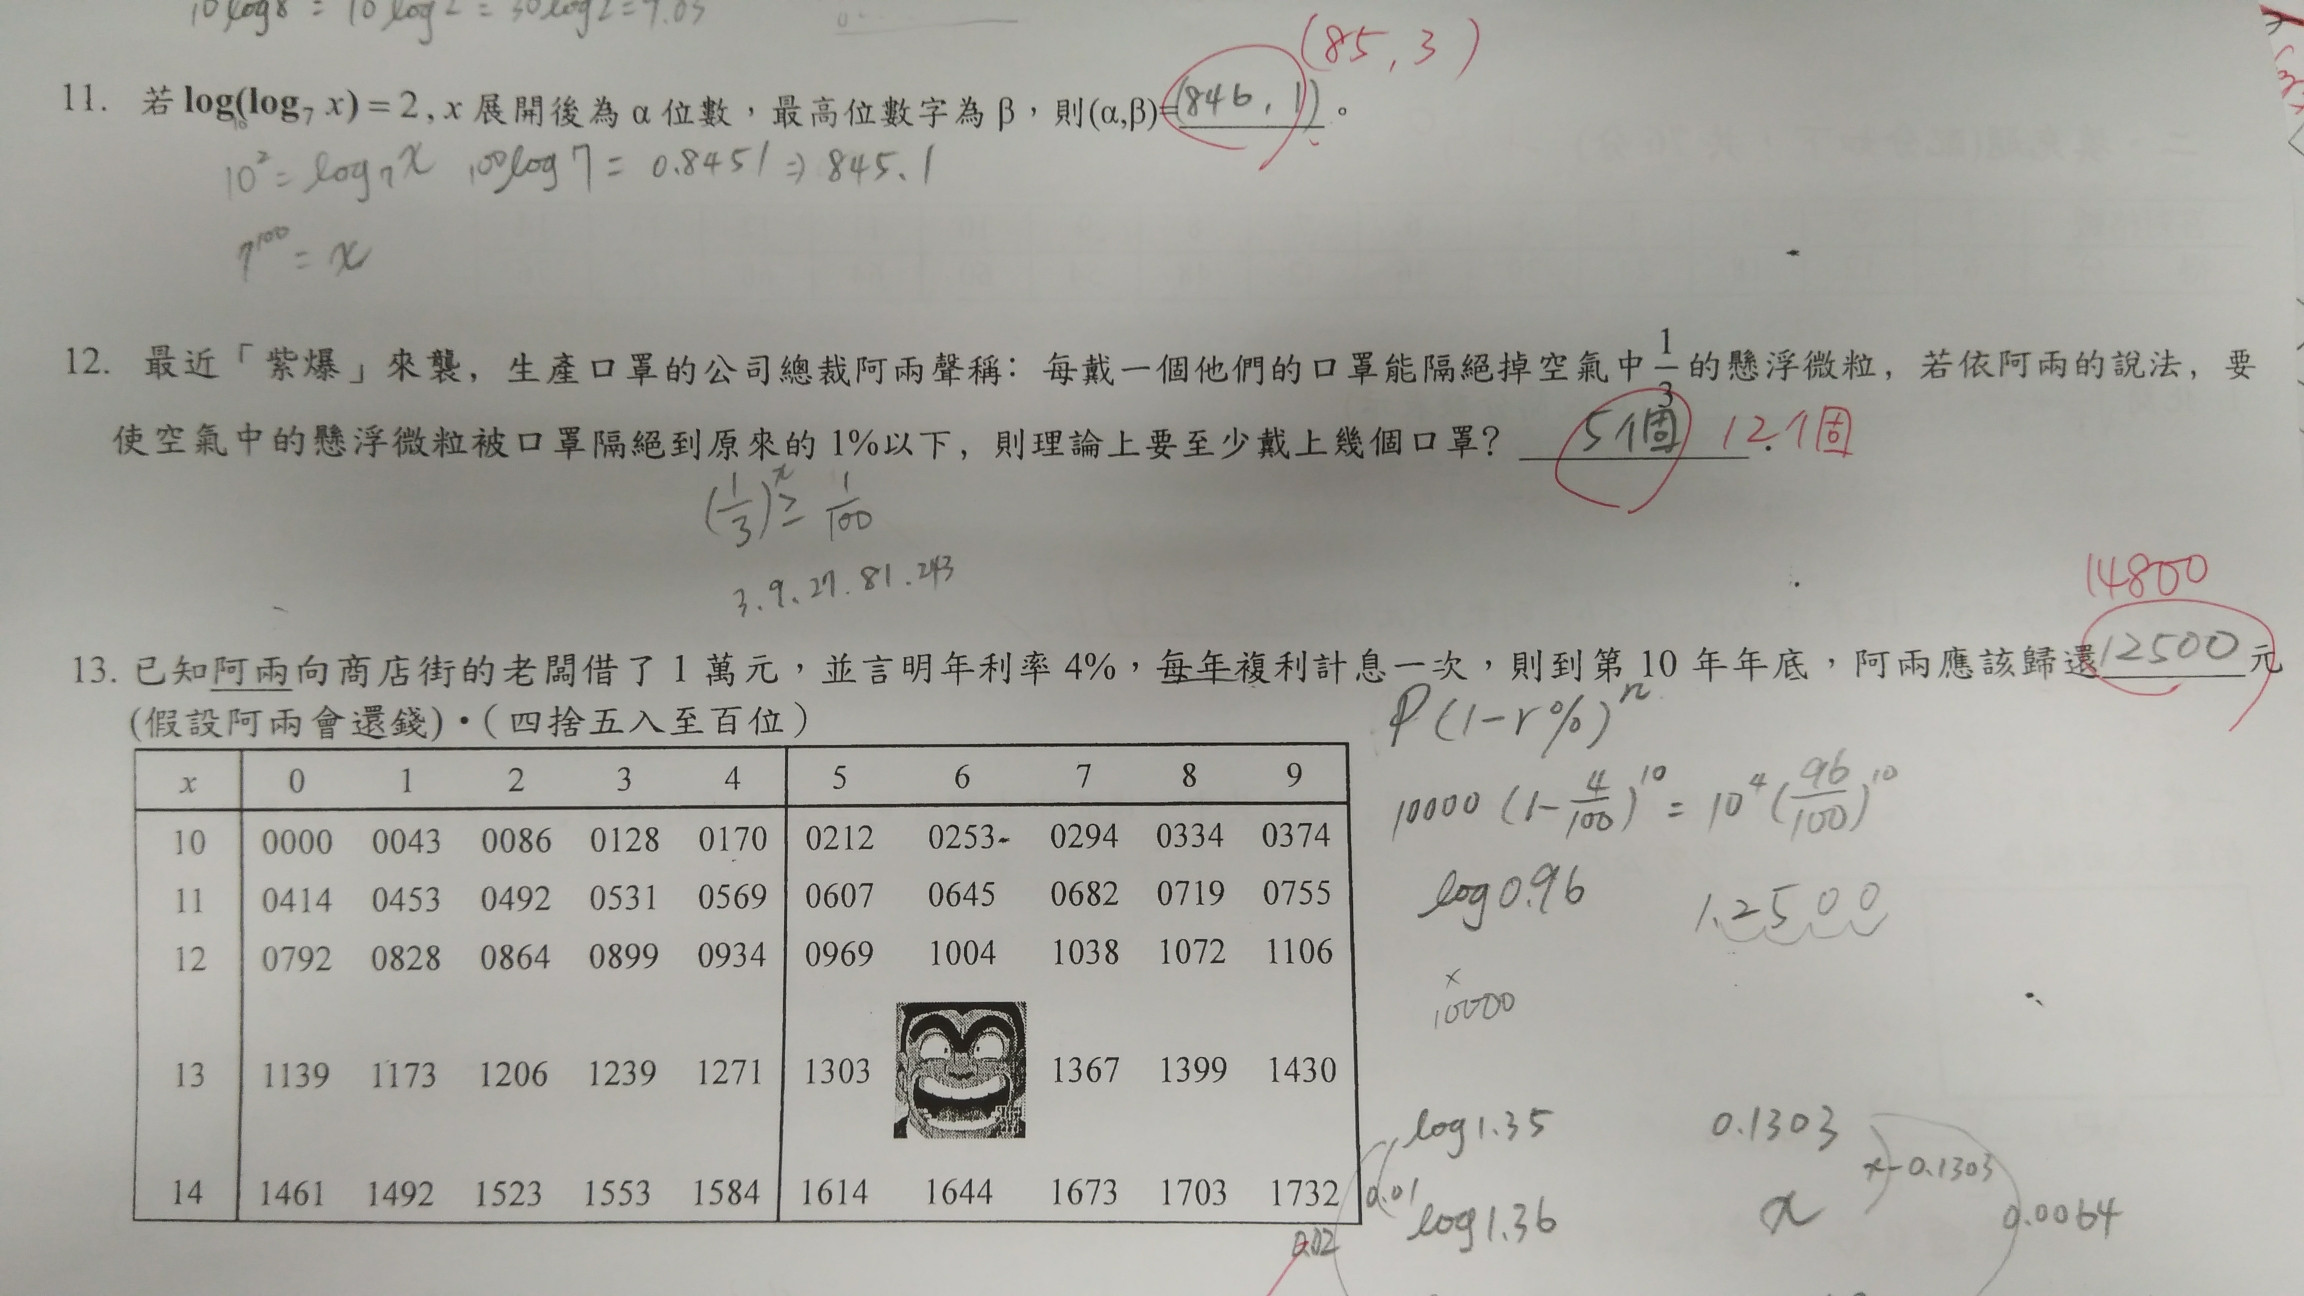 10log8 = 10log2 = 30log2=9.03
(85,3)
11. 若 log(log₇ x) = 2 , x 展開後為 α 位數，最高位數字為 β，則(α,β)=(846,1)。
10² = log₇x 100log7 = 0.8451 ⇒ 845.1
7¹⁰⁰ = x
12. 最近「紫爆」來襲，生產口罩的公司總裁阿兩聲稱：每戴一個他們的口罩能隔絕掉空氣中 1/3 的懸浮微粒，若依阿兩的說法，要
使空氣中的懸浮微粒被口罩隔絕到原來的 1%以下，則理論上要至少戴上幾個口罩？ 5個 12個
(1/3)ˣ ≥ 1/100
3.9.27.81.243
14800
13. 已知阿兩向商店街的老闆借了 1 萬元，並言明年利率 4%，每年複利計息一次，則到第 10 年年底，阿兩應該歸還12500元
(假設阿兩會還錢)·（四捨五入至百位）
P(1-r%)ⁿ
10000(1-4/100)¹⁰ = 10⁴(96/100)¹⁰
log0.96 1.2500
×
10000
x 0 1 2 3 4 5 6 7 8 9
10 0000 0043 0086 0128 0170 0212 0253 0294 0334 0374
11 0414 0453 0492 0531 0569 0607 0645 0682 0719 0755
12 0792 0828 0864 0899 0934 0969 1004 1038 1072 1106
13 1139 1173 1206 1239 1271 1303 1367 1399 1430
14 1461 1492 1523 1553 1584 1614 1644 1673 1703 1732
log1.35 0.1303
x-0.1303
0.01
log1.36 x 0.0064
0.02